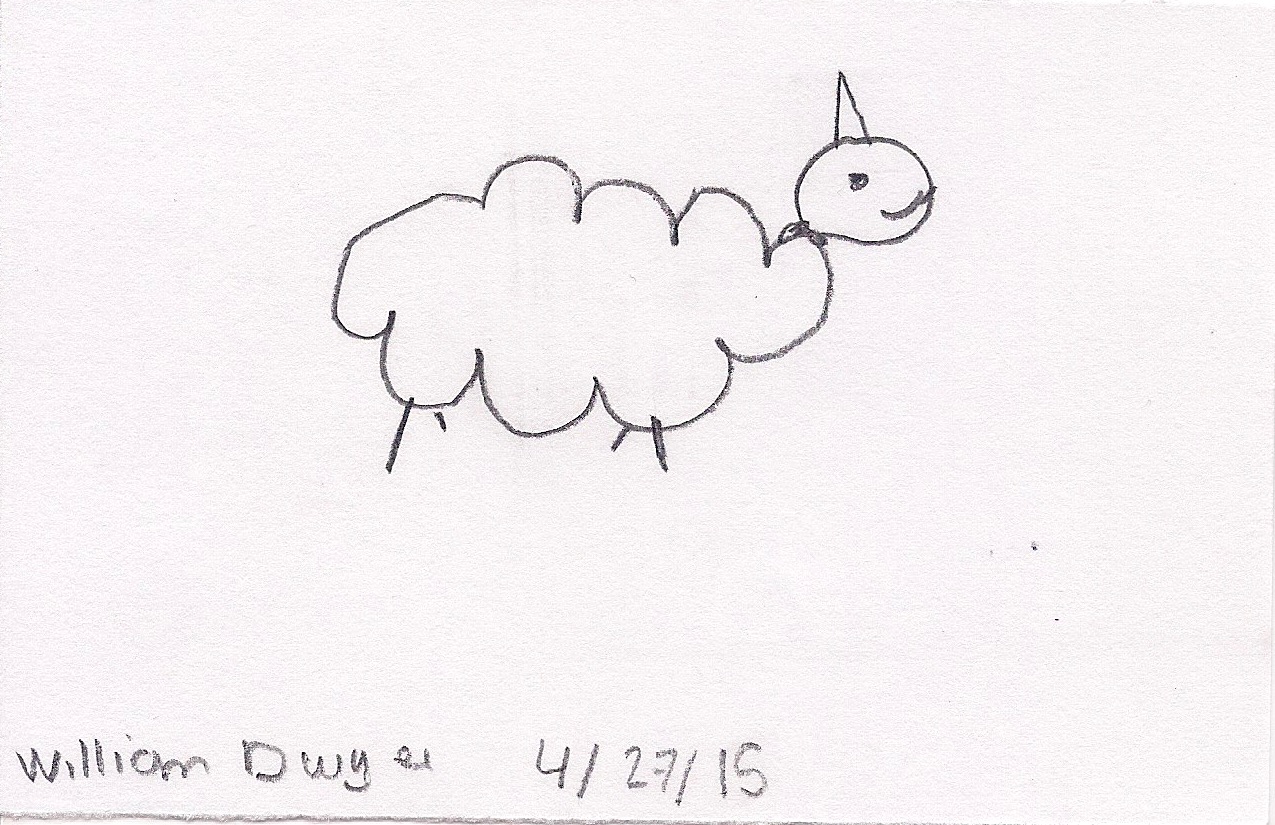 William Dwyer 4/27/15